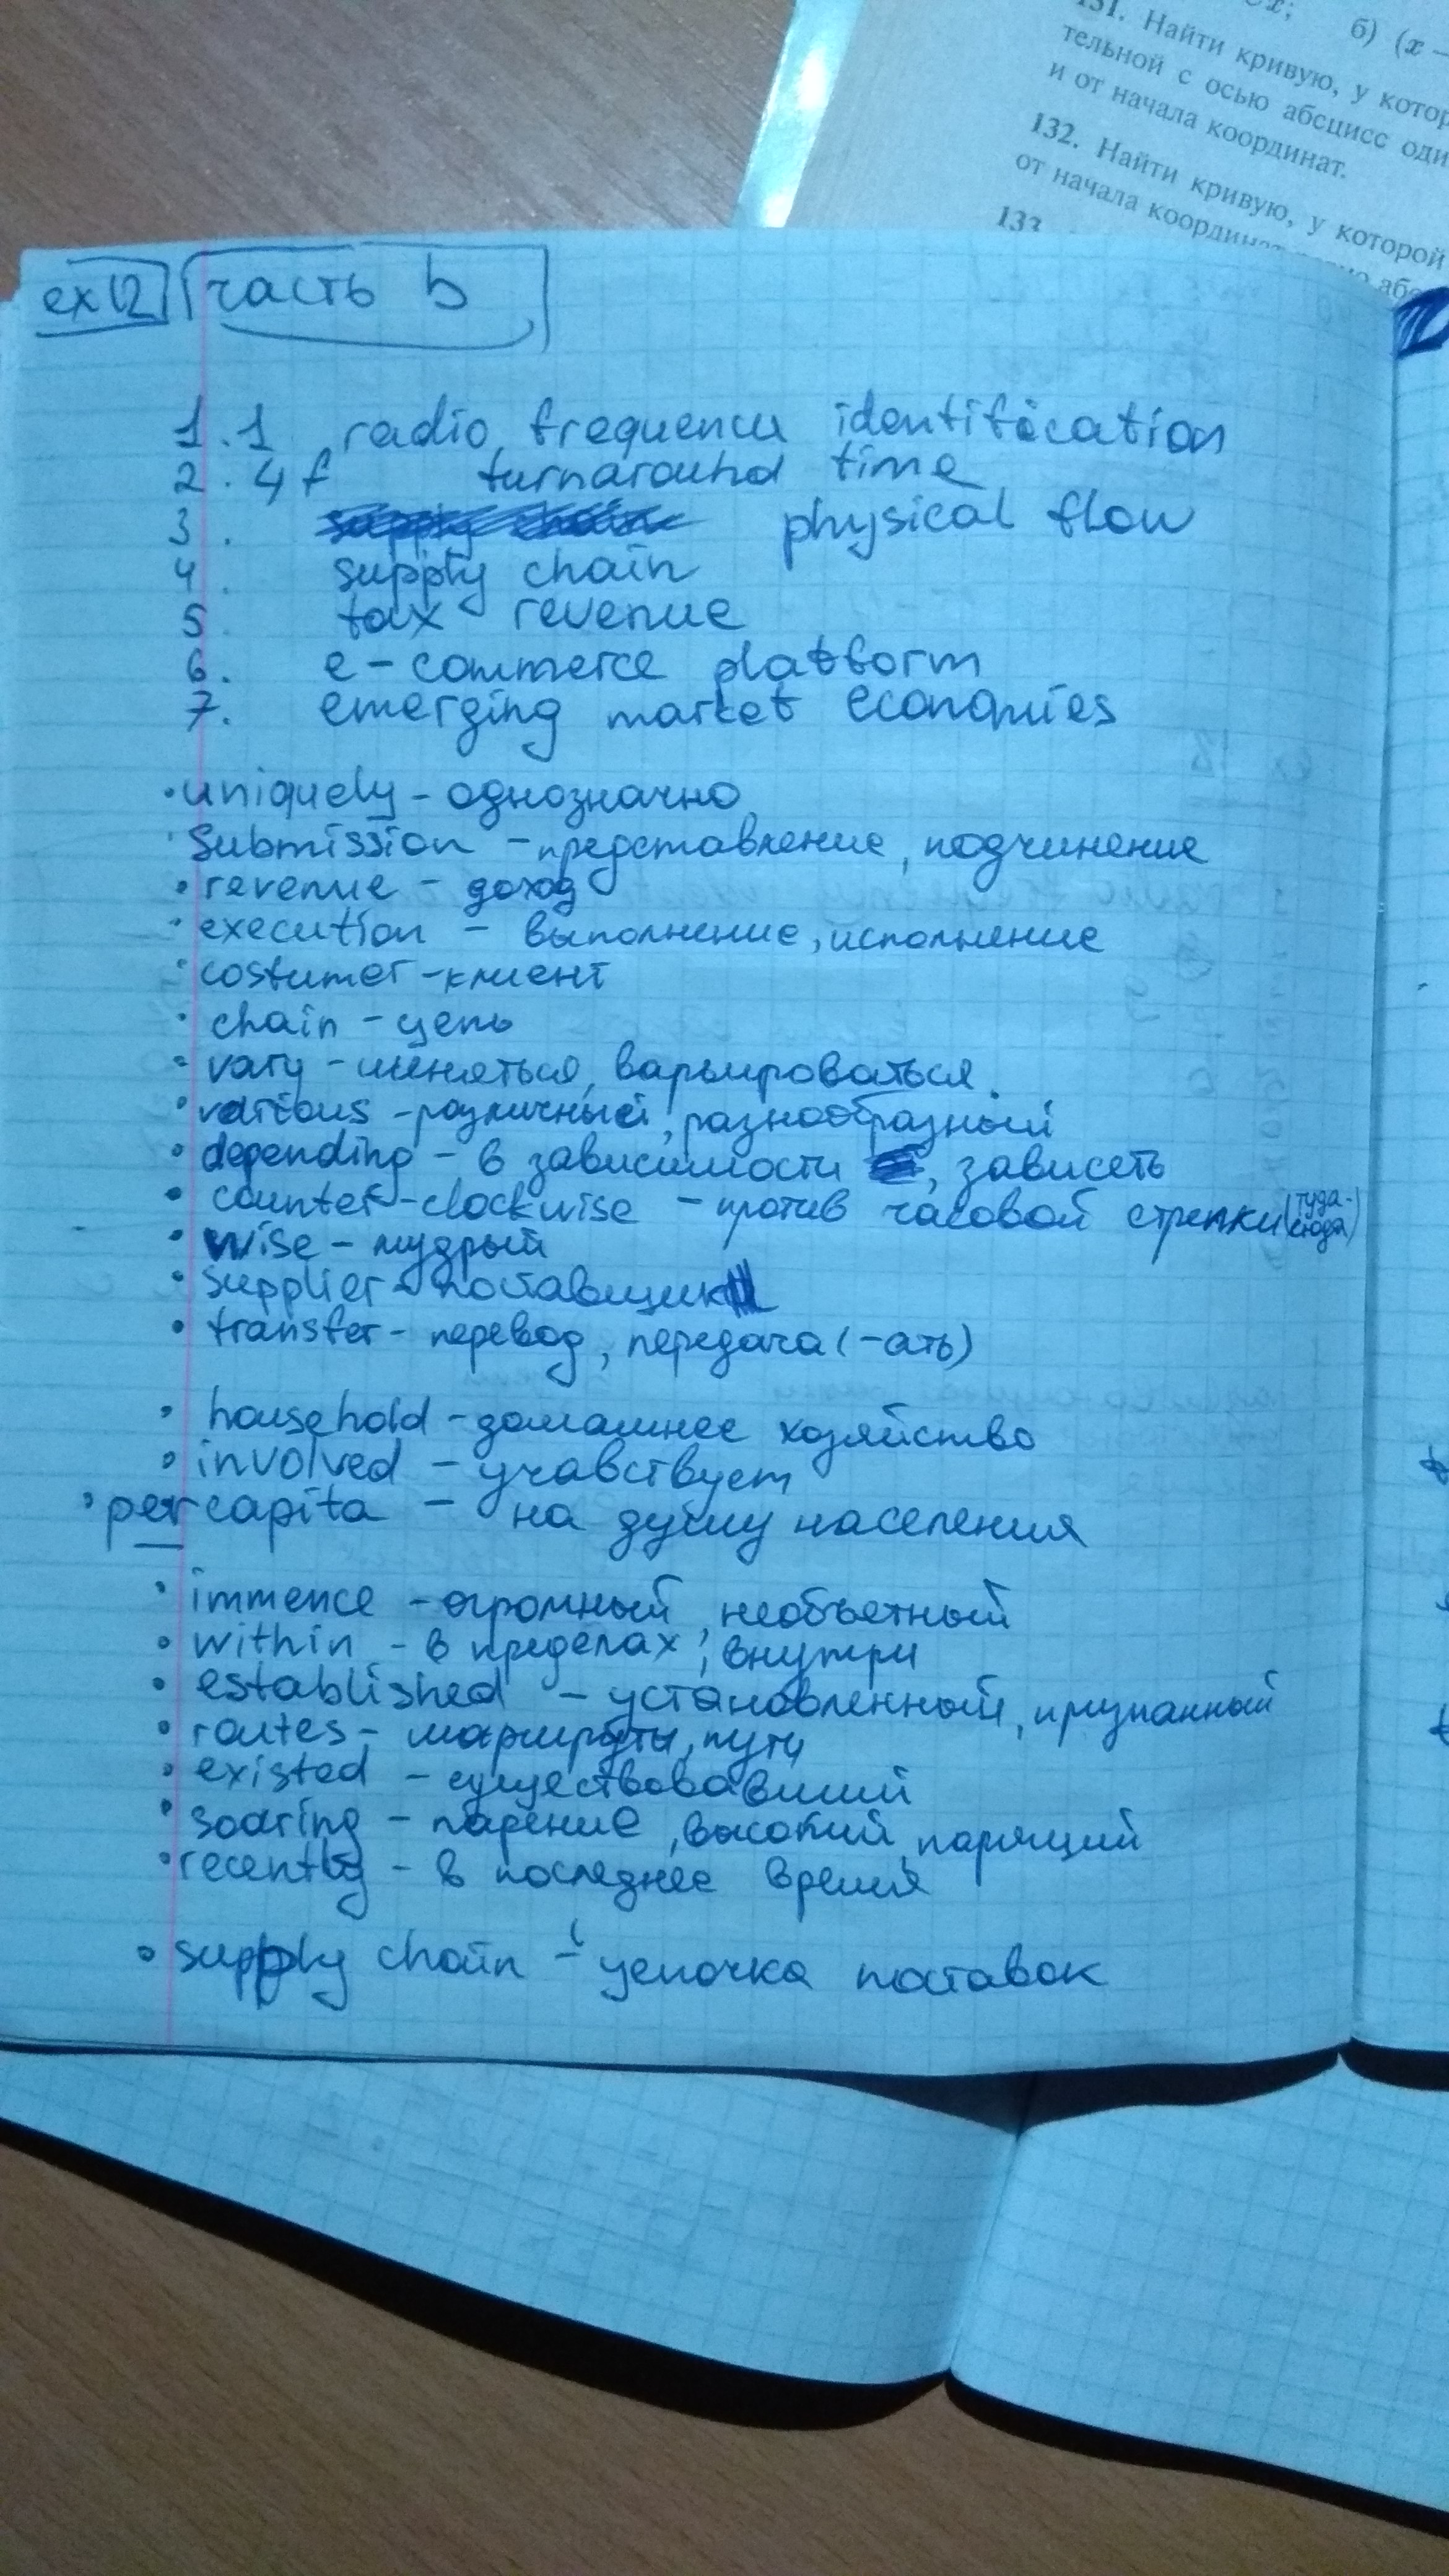 б) (x –
131. Найти кривую, у котор
тельной с осью абсцисс оди
и от начала координат.
132. Найти кривую, у которой
от начала координат
133
ex12 часть b
1.1 radio frequency identification
2. 4 f turnaround time
3. supply chain physical flow
4. supply chain
5. tax revenue
6. e-commerce platform
7. emerging market economies
• uniquely - однозначно
• Submission - представление, подчинение
• revenue - доход
• execution - выполнение, исполнение
• costumer - клиент
• chain - цепь
• vary - меняться, варьироваться
• various - различный, разнообразный
• depending - в зависимости, зависеть
• counter-clockwise - против часовой стрелки (туда-
сюда)
• wise - мудрый
• supplier - поставщик
• transfer - перевод, передача (-ать)
• household - домашнее хозяйство
• involved - учавствует
• per capita - на душу населения
• immence - огромный, необъетный
• within - в пределах, внутри
• established - установленный, признанный
• routes - маршруты, пути
• existed - существовавший
• soaring - парение, высокий, парящий
• recently - в последнее время
• supply chain - цепочка поставок